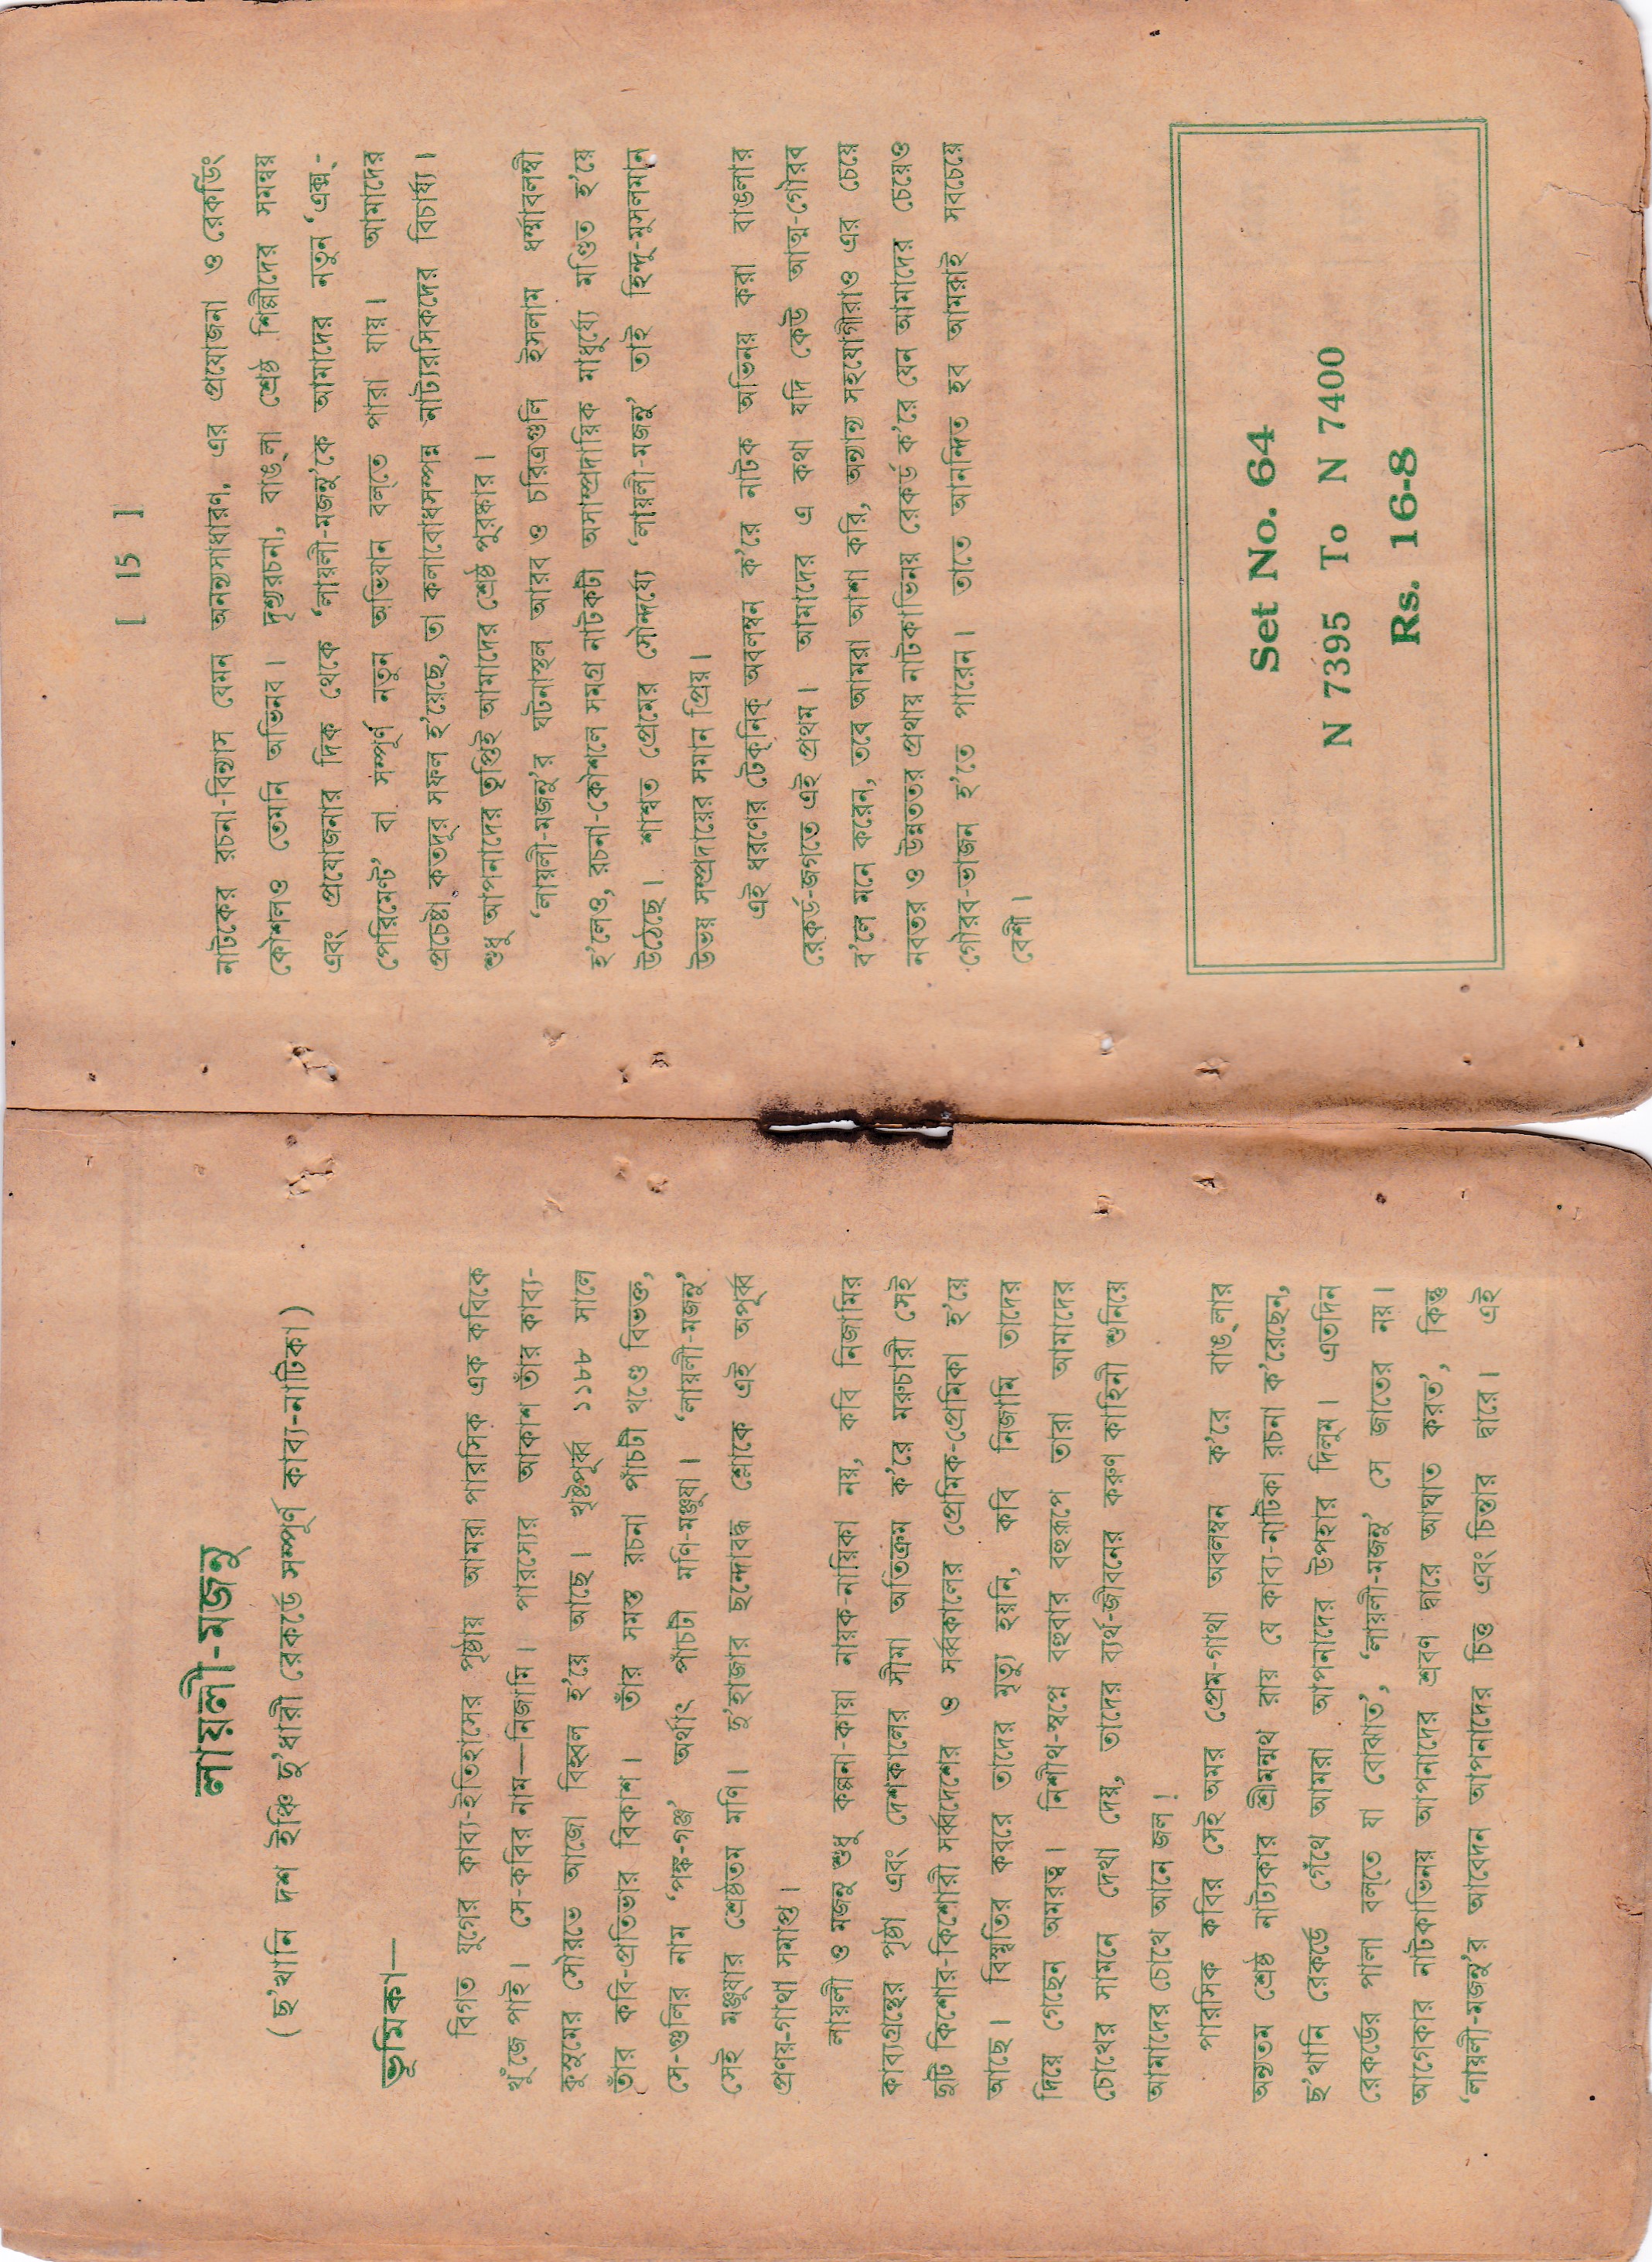 লায়লী-মজনু
( ছ’খানি দশ ইঞ্চি দু’ধারী রেকর্ডে সম্পূর্ণ কাব্য-নাটিকা )
ভূমিকা—
বিগত যুগের কাব্য-ইতিহাসের পৃষ্ঠায় আমরা পারসিক এক কবিকে
খুঁজে পাই। সে-কবির নাম—নিজামি। পারস্যের আকাশ তাঁর কাব্য-
কুসুমের সৌরভে আজো বিহ্বল হ’য়ে আছে। খৃষ্টপূর্ব্ব ১১৮৮ সালে
তাঁর কবি-প্রতিভার বিকাশ। তাঁর সমস্ত রচনা পাঁচটী খণ্ডে বিভক্ত,
সে-গুলির নাম ‘পঞ্চ-গঞ্জ’ অর্থাৎ পাঁচটী মণি-মঞ্জুষা। ‘লায়লী-মজনু’
সেই মঞ্জুষার শ্রেষ্ঠতম মণি। দু’হাজার ছন্দোবদ্ধ শ্লোকে এই অপূর্ব্ব
প্রণয়-গাথা সমাপ্ত।
লায়লী ও মজনু শুধু কল্পনা-কায়া নায়ক-নায়িকা নয়, কবি নিজামির
কাব্যগ্রন্থের পৃষ্ঠা এবং দেশকালের সীমা অতিক্রম ক’রে মরুচারী সেই
দুটি কিশোর-কিশোরী সর্ব্বদেশের ও সর্ব্বকালের প্রেমিক-প্রেমিকা হ’য়ে
আছে। বিস্মৃতির কবরে তাদের মৃত্যু হয়নি, কবি নিজামি তাদের
দিয়ে গেছেন অমরত্ব। নিশীথ-স্বপ্নে বহুবার বহুরূপে তারা আমাদের
চোখের সামনে দেখা দেয়, তাদের ব্যর্থ-জীবনের করুণ কাহিনী শুনিয়ে
আমাদের চোখে আনে জল!
পারসিক কবির সেই অমর প্রেম-গাথা অবলম্বন ক’রে বাঙ্‌লার
অন্যতম শ্রেষ্ঠ নাট্যকার শ্রীমন্মথ রায় যে কাব্য-নাটিকা রচনা ক’রেছেন,
ছ’খানি রেকর্ডে গেঁথে আমরা আপনাদের উপহার দিলুম। এতদিন
রেকর্ডের পালা বল্‌তে যা বোঝাত’, ‘লায়লী-মজনু’ সে জাতের নয়।
আগেকার নাটকাভিনয় আপনাদের শ্রবণ দ্বারে আঘাত করত’, কিন্তু
‘লায়লী-মজনু’র আবেদন আপনাদের চিত্ত এবং চিন্তার দ্বারে। এই
[ 15 ]
নাটকের রচনা-বিন্যাস যেমন অনন্যসাধারণ, এর প্রযোজনা ও রেকর্ডিং
কৌশলও তেমনি অভিনব। দৃশ্যরচনা, বাঙ্‌লা শ্রেষ্ঠ শিল্পীদের সমন্বয়
এবং প্রযোজনার দিক থেকে ‘লায়লী-মজনু’কে আমাদের নতুন ‘এক্স্-
পেরিমেন্ট’ বা সম্পূর্ণ নতুন অভিযান বল্‌তে পারা যায়। আমাদের
প্রচেষ্টা কতদূর সফল হ’য়েছে, তা কলাবোধসম্পন্ন নাট্যরসিকদের বিচার্য্য।
শুধু আপনাদের তৃপ্তিই আমাদের শ্রেষ্ঠ পুরস্কার।
‘লায়লী-মজনু’র ঘটনাস্থল আরব ও চরিত্রগুলি ইসলাম ধর্ম্মাবলম্বী
হ’লেও, রচনা-কৌশলে সমগ্র নাটকটী অসাম্প্রদায়িক মাধুর্য্যে মণ্ডিত হ’য়ে
উঠেছে। শাশ্বত প্রেমের সৌন্দর্য্যে ‘লায়লী-মজনু’ তাই হিন্দু-মুসলমান
উভয় সম্প্রদায়ের সমান প্রিয়।
এই ধরণের টেক্‌নিক্ অবলম্বন ক’রে নাটক অভিনয় করা বাঙলার
রেকর্ড-জগতে এই প্রথম। আমাদের এ কথা যদি কেউ আত্ম-গৌরব
ব’লে মনে করেন, তবে আমরা আশা করি, অন্যান্য সহযোগীরাও এর চেয়ে
নবতর ও উন্নততর প্রথায় নাটকাভিনয় রেকর্ড ক’রে যেন আমাদের চেয়েও
গৌরব-ভাজন হ’তে পারেন। তাতে আনন্দিত হব আমরাই সবচেয়ে
বেশী।
Set No. 64
N 7395 To N 7400
Rs. 16-8